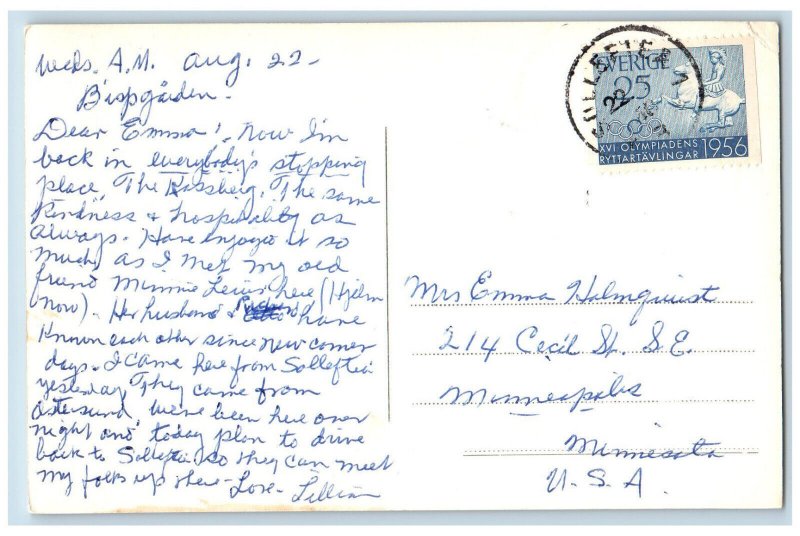 Weds. A.M. Aug. 22-
Bispgården-
Dear Emma! - Now I'm
back in everybody's stopping
place, The Same
Kindness & hospitality as
always. Have enjoyed it so
much, as I met my old
friend Minnie here (Hjelm
now). Her husband & have
known each other since new comer
days. I came here from Sollefteå
yesterday. They came from
Östersund. We've been here over
night and today plan to drive
back to Sollefteå so they can meet
my folks up there - Love - Lillian
SOLLEFTEÅ 1
22
SVERIGE
25
XVI OLYMPIADENS
RYTTARTÄVLINGAR 1956
Mrs Emma Holmquist
214 Cecil St. S.E.
Minneapolis
Minnesota
U.S.A.